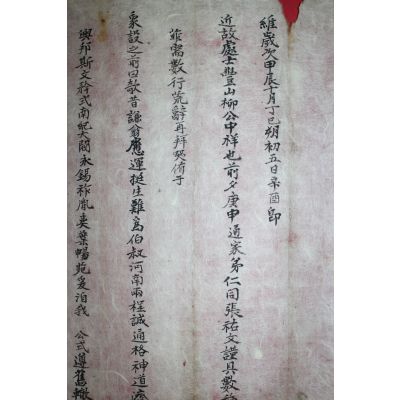 維歲次甲辰十月丁巳朔初五日辛酉卽
近故處士豐山柳公中祥也前夕庚申通家弟仁同張祐文謹具數
菲需數行荒辭再拜哭侑于
象設之前曰欽昔謙翁應運挺生難爲伯叔河南兩程誠通格神道
興邦斯文矜式南紀大閥永錫祚胤奕葉暢苑爰洎我 公式遵舊轍